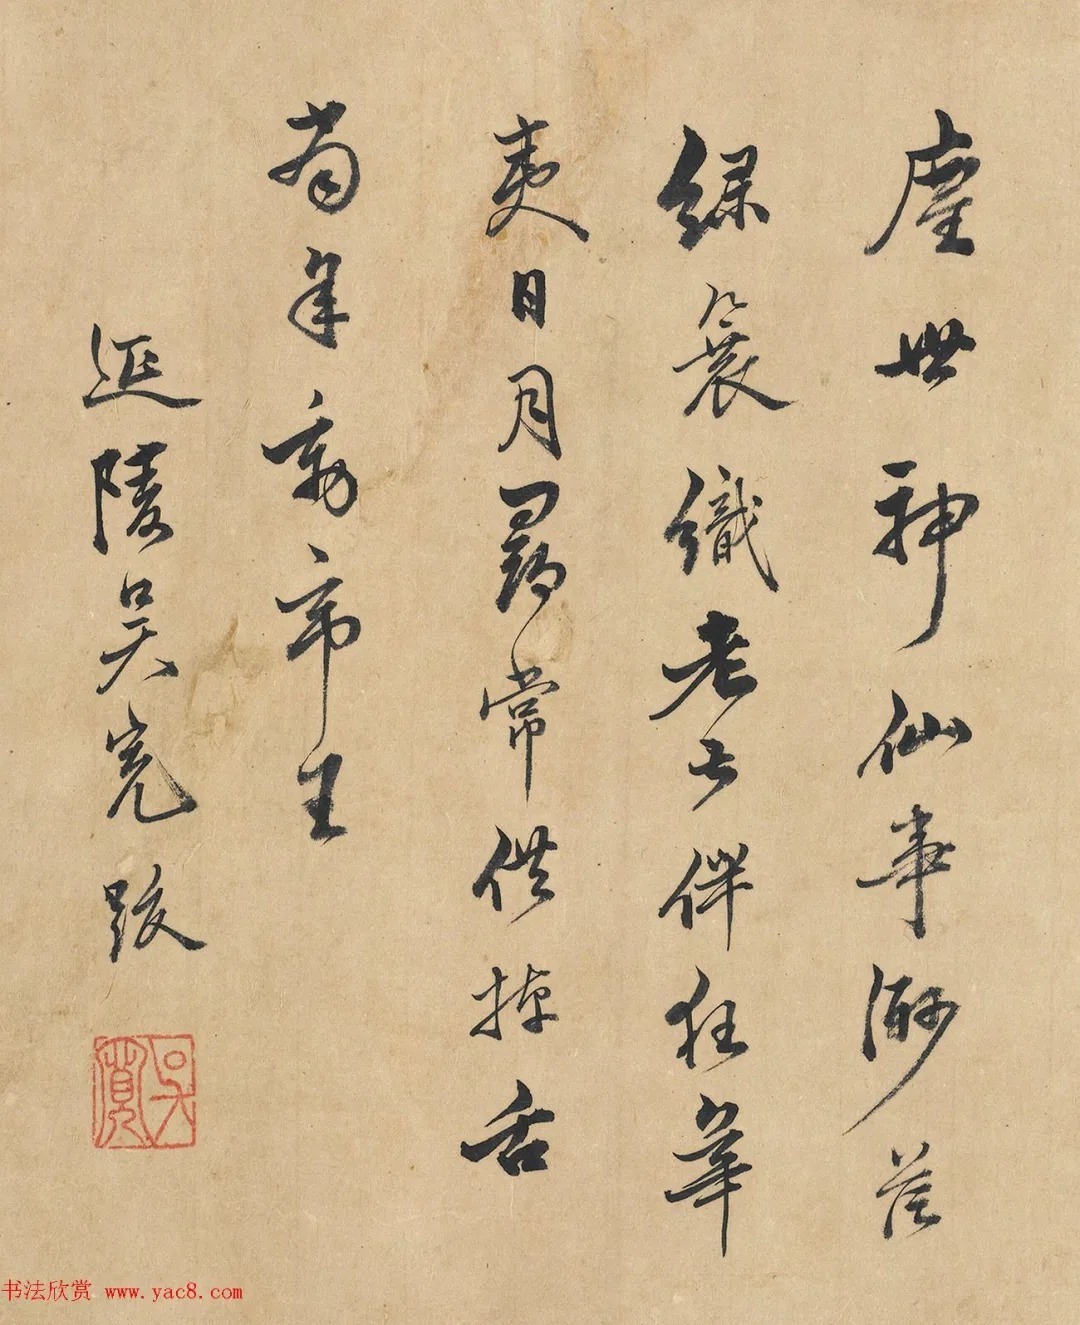 塵世神仙事渺茫
綠蓑織老佯狂華
夷日月尋常供掉舌
當年動帝王
延陵吳寬跋
吳寬
书法欣赏 www.yac8.com